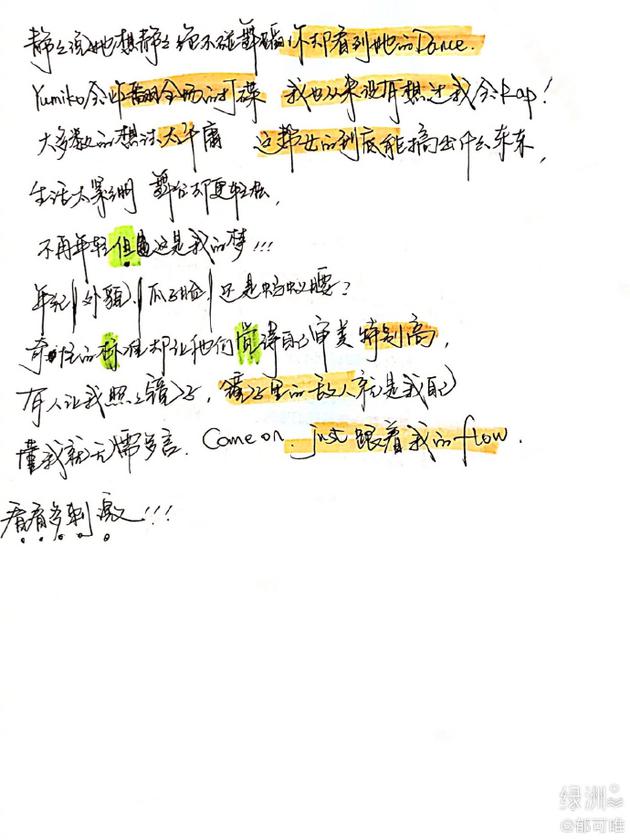 静静说她想静静 绝不碰舞蹈 你却看到她的Dance.
Yumiko会炸翻全场的打碟 我也从来没有想过我会Rap!
大多数的想法太平庸 这帮女的到底能搞出什么东东,
生活太累 舞台却更轻松,
不再年轻但是这是我的梦!!!
年纪|外貌|瓜子脸|还是蚂蚁腰?
奇怪的标准却让他们觉得自己审美特别高,
有人让我照照镜子, 镜子里的敌人就是我自己
懂我就无需多言. Come on. just 跟着我的flow.
看看多刺激!!!
绿洲
@郁可唯